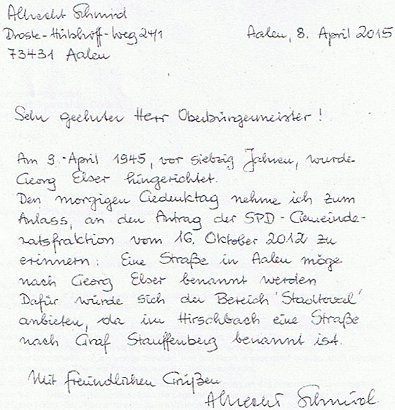 Albrecht Schmid
Droste-Hülshoff-Weg 24/1
73431 Aalen
Aalen, 8. April 2015
Sehr geehrter Herr Oberbürgermeister!
Am 9. April 1945, vor siebzig Jahren, wurde
Georg Elser hingerichtet.
Den morgigen Gedenktag nehme ich zum
Anlass, an den Antrag der SPD-Gemeinde-
ratsfraktion vom 16. Oktober 2012 zu
erinnern: Eine Straße in Aalen möge
nach Georg Elser benannt werden.
Dafür würde sich der Bereich 'Stadtoval'
anbieten, da im Hirschbach eine Straße
nach Graf Stauffenberg benannt ist.
Mit freundlichen Grüßen
Albrecht Schmid